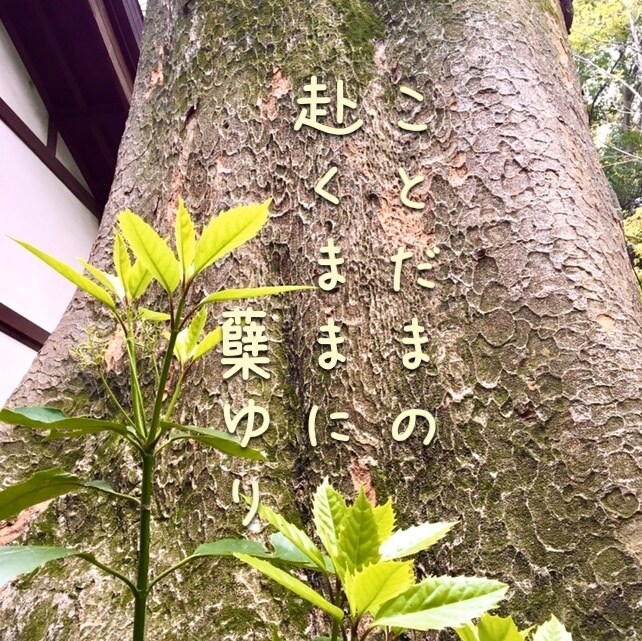 ことだまの
赴くままに
蘖ゆり